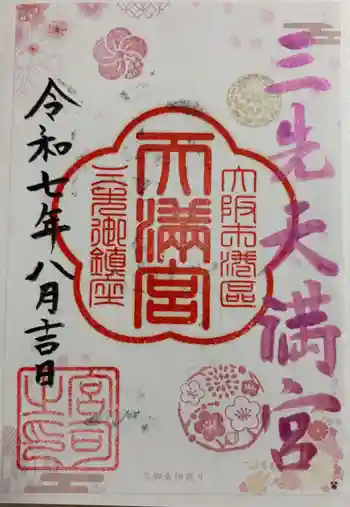 三先天満宮
大阪市港區
天満宮
三先御鎮座
令和七年八月吉日
宮司之印